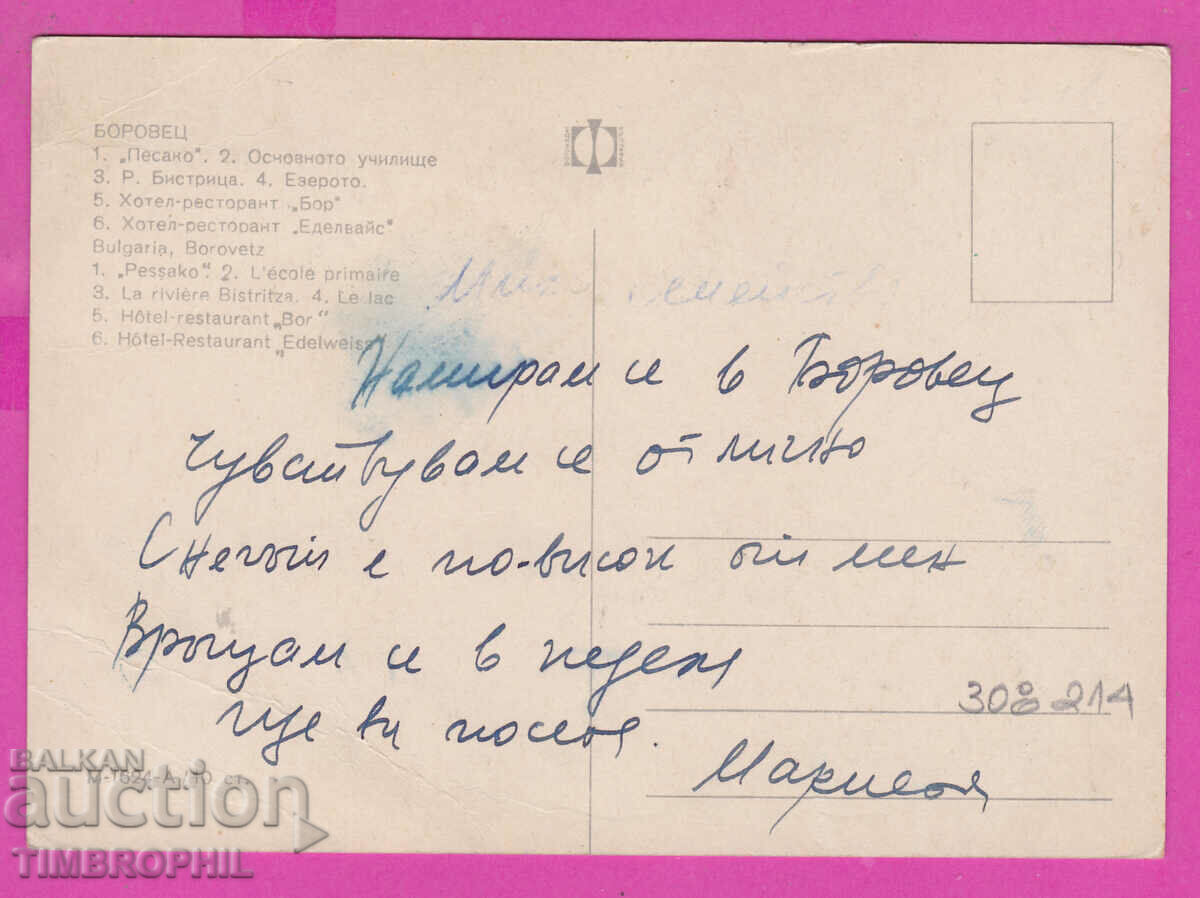 БОРОВЕЦ
1. „Песако". 2. Основното училище
3. Р. Бистрица. 4. Езерото.
5. Хотел-ресторант „Бор"
6. Хотел-ресторант „Еделвайс"
Bulgaria, Borovetz
1. „Pessako". 2. L'école primaire
3. La rivière Bistritza. 4. Le lac
5. Hôtel-restaurant „Bor"
6. Hôtel-Restaurant „Edelweiss"
Намирам се в Боровец
Чувствувам се отлично
Снегът е по-висок от мен
Връщам се в неделя
ще ви
308 214
М-1524-А 10 ст.
BALKAN
auction
TIMBROPHIL